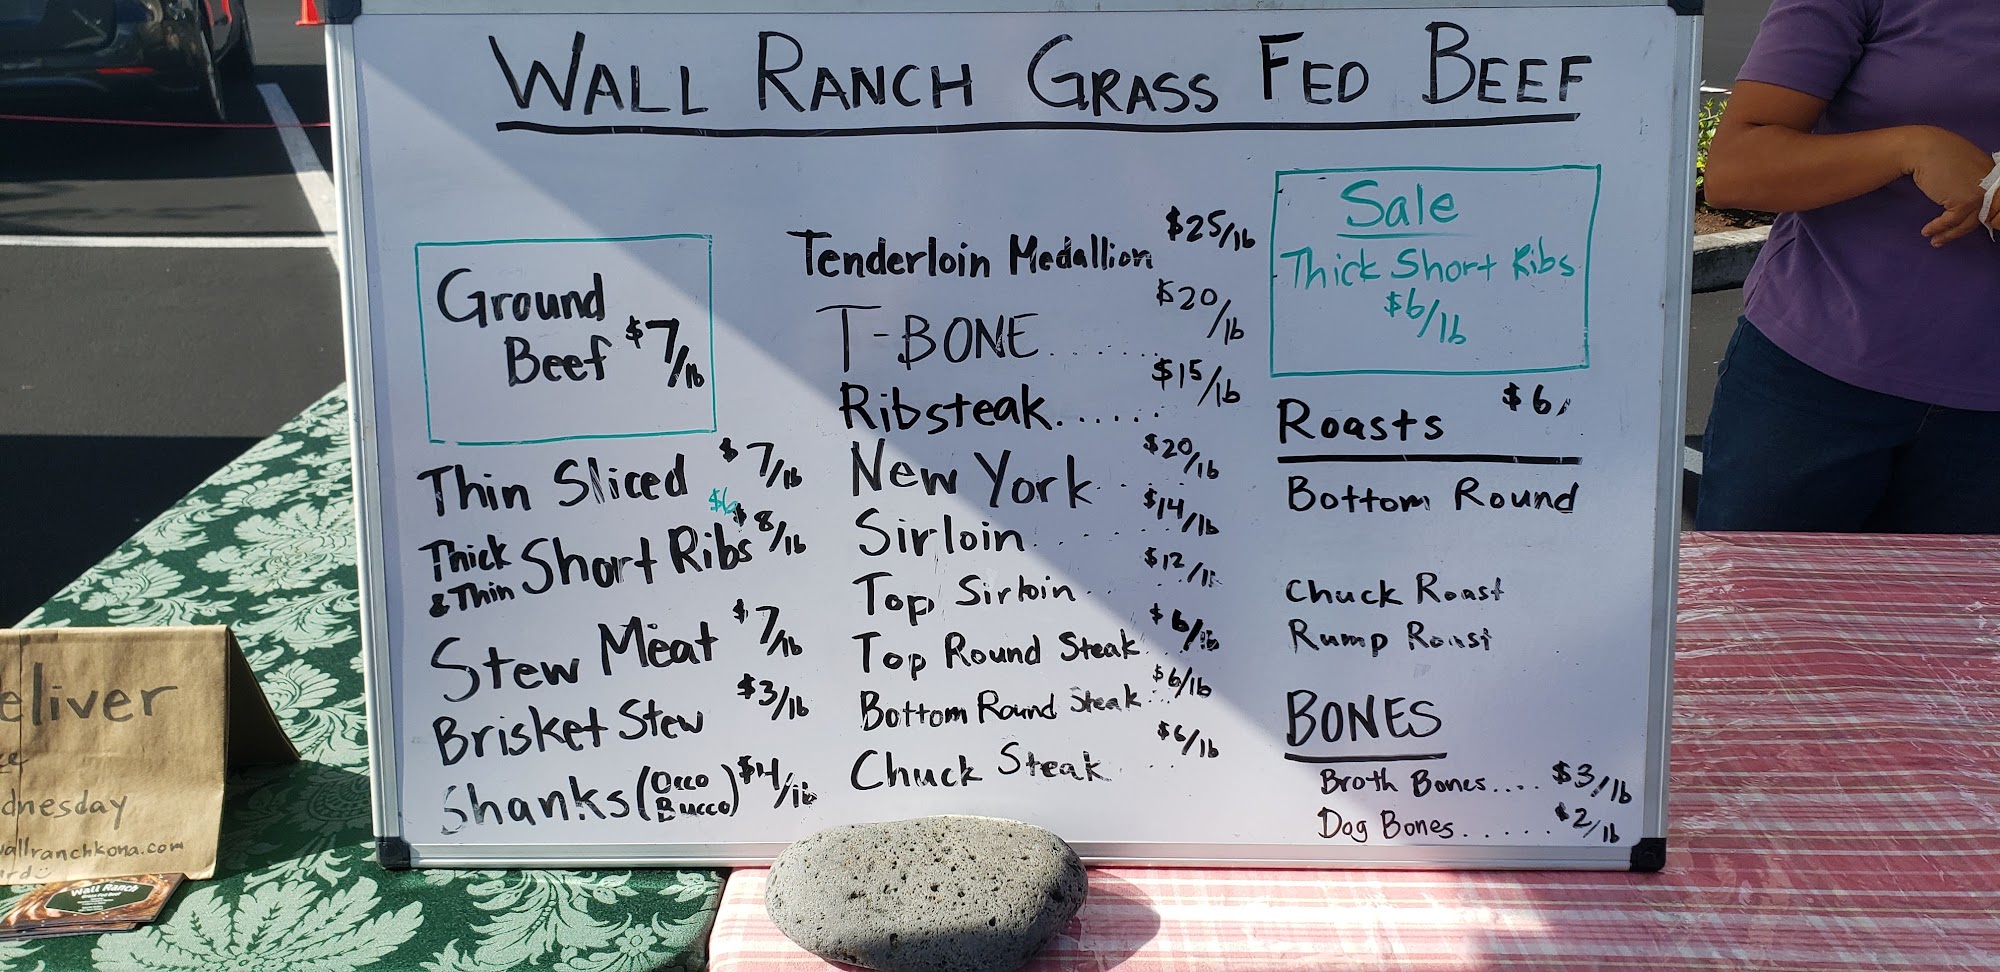 WALL RANCH GRASS FED BEEF
Ground
Beef $7/lb
Thin Sliced $7/lb
$6
Thick & Thin Short Ribs $8/lb
Stew Meat $7/lb
Brisket Stew $3/lb
Shanks (Occo Bucco) $4/lb
Tenderloin Medallion $25/lb
T-BONE..... $20/lb
Ribsteak..... $15/lb
New York... $20/lb
Sirloin..... $14/lb
Top Sirloin.. $12/lb
Top Round Steak.. $6/lb
Bottom Round Steak... $6/lb
Chuck Steak... $6/lb
Sale
Thick Short Ribs
$6/lb
Roasts $6/
Bottom Round
Chuck Roast
Rump Roast
BONES
Broth Bones.... $3/lb
Dog Bones...... $2/lb
eliver
dnesday
allranchkona.com
Wall Ranch